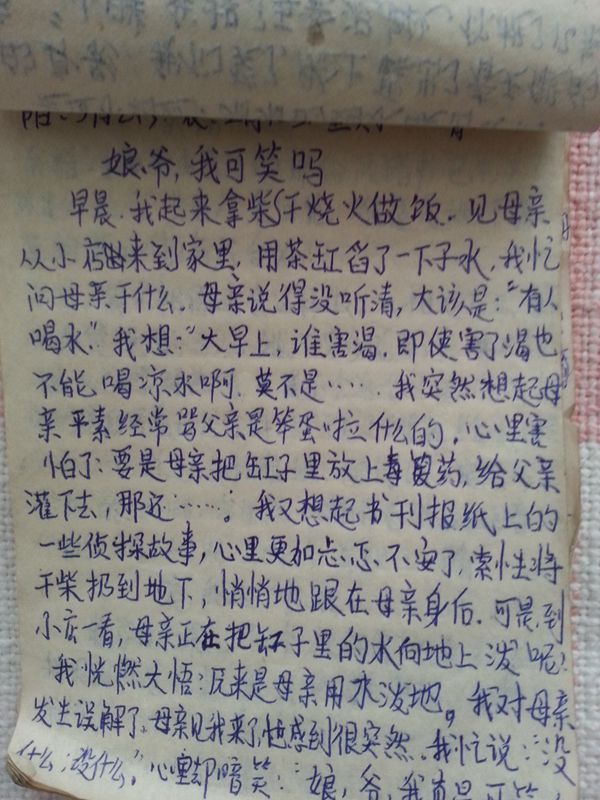 娘、爷,我可笑吗
早晨.我起来拿柴干烧火做饭.见母亲
从小店出来到家里,用茶缸舀了一下子水,我忙
问母亲干什么.母亲说得没听清,大该是:“有人
喝水”.我想:“大早上,谁害渴.即使害了渴也
不能喝凉水啊.莫不是……我突然想起母
亲平素经常骂父亲是笨蛋啦什么的.心里害
怕了:要是母亲把缸子里放上毒药,给父亲
灌下去,那还……。我又想起书刊报纸上的
一些侦探故事,心里更加忐忑不安了,索性将
干柴扔到地下,悄悄地跟在母亲身后.可是,到
小店一看,母亲正在把缸子里的水向地上泼呢!
我恍燃大悟:原来是母亲用水泼地。我对母亲
发生误解了.母亲见我来了,也感到很突然.我忙说:“没
什么,没什么”,心里却暗笑:“娘,爷,我真是可笑,